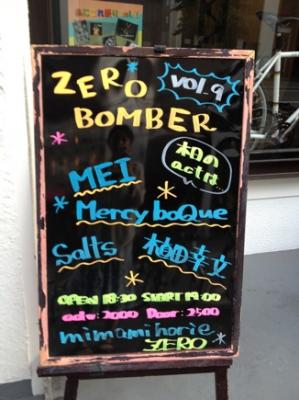 ZERO
vol.9
BOMBER
本日の
act は...
MEI
Mercy boQue
Salts 柚田幸文
OPEN 18:30 START 19:00
adv: 2000 Door: 2500
mimamihorie
ZERO